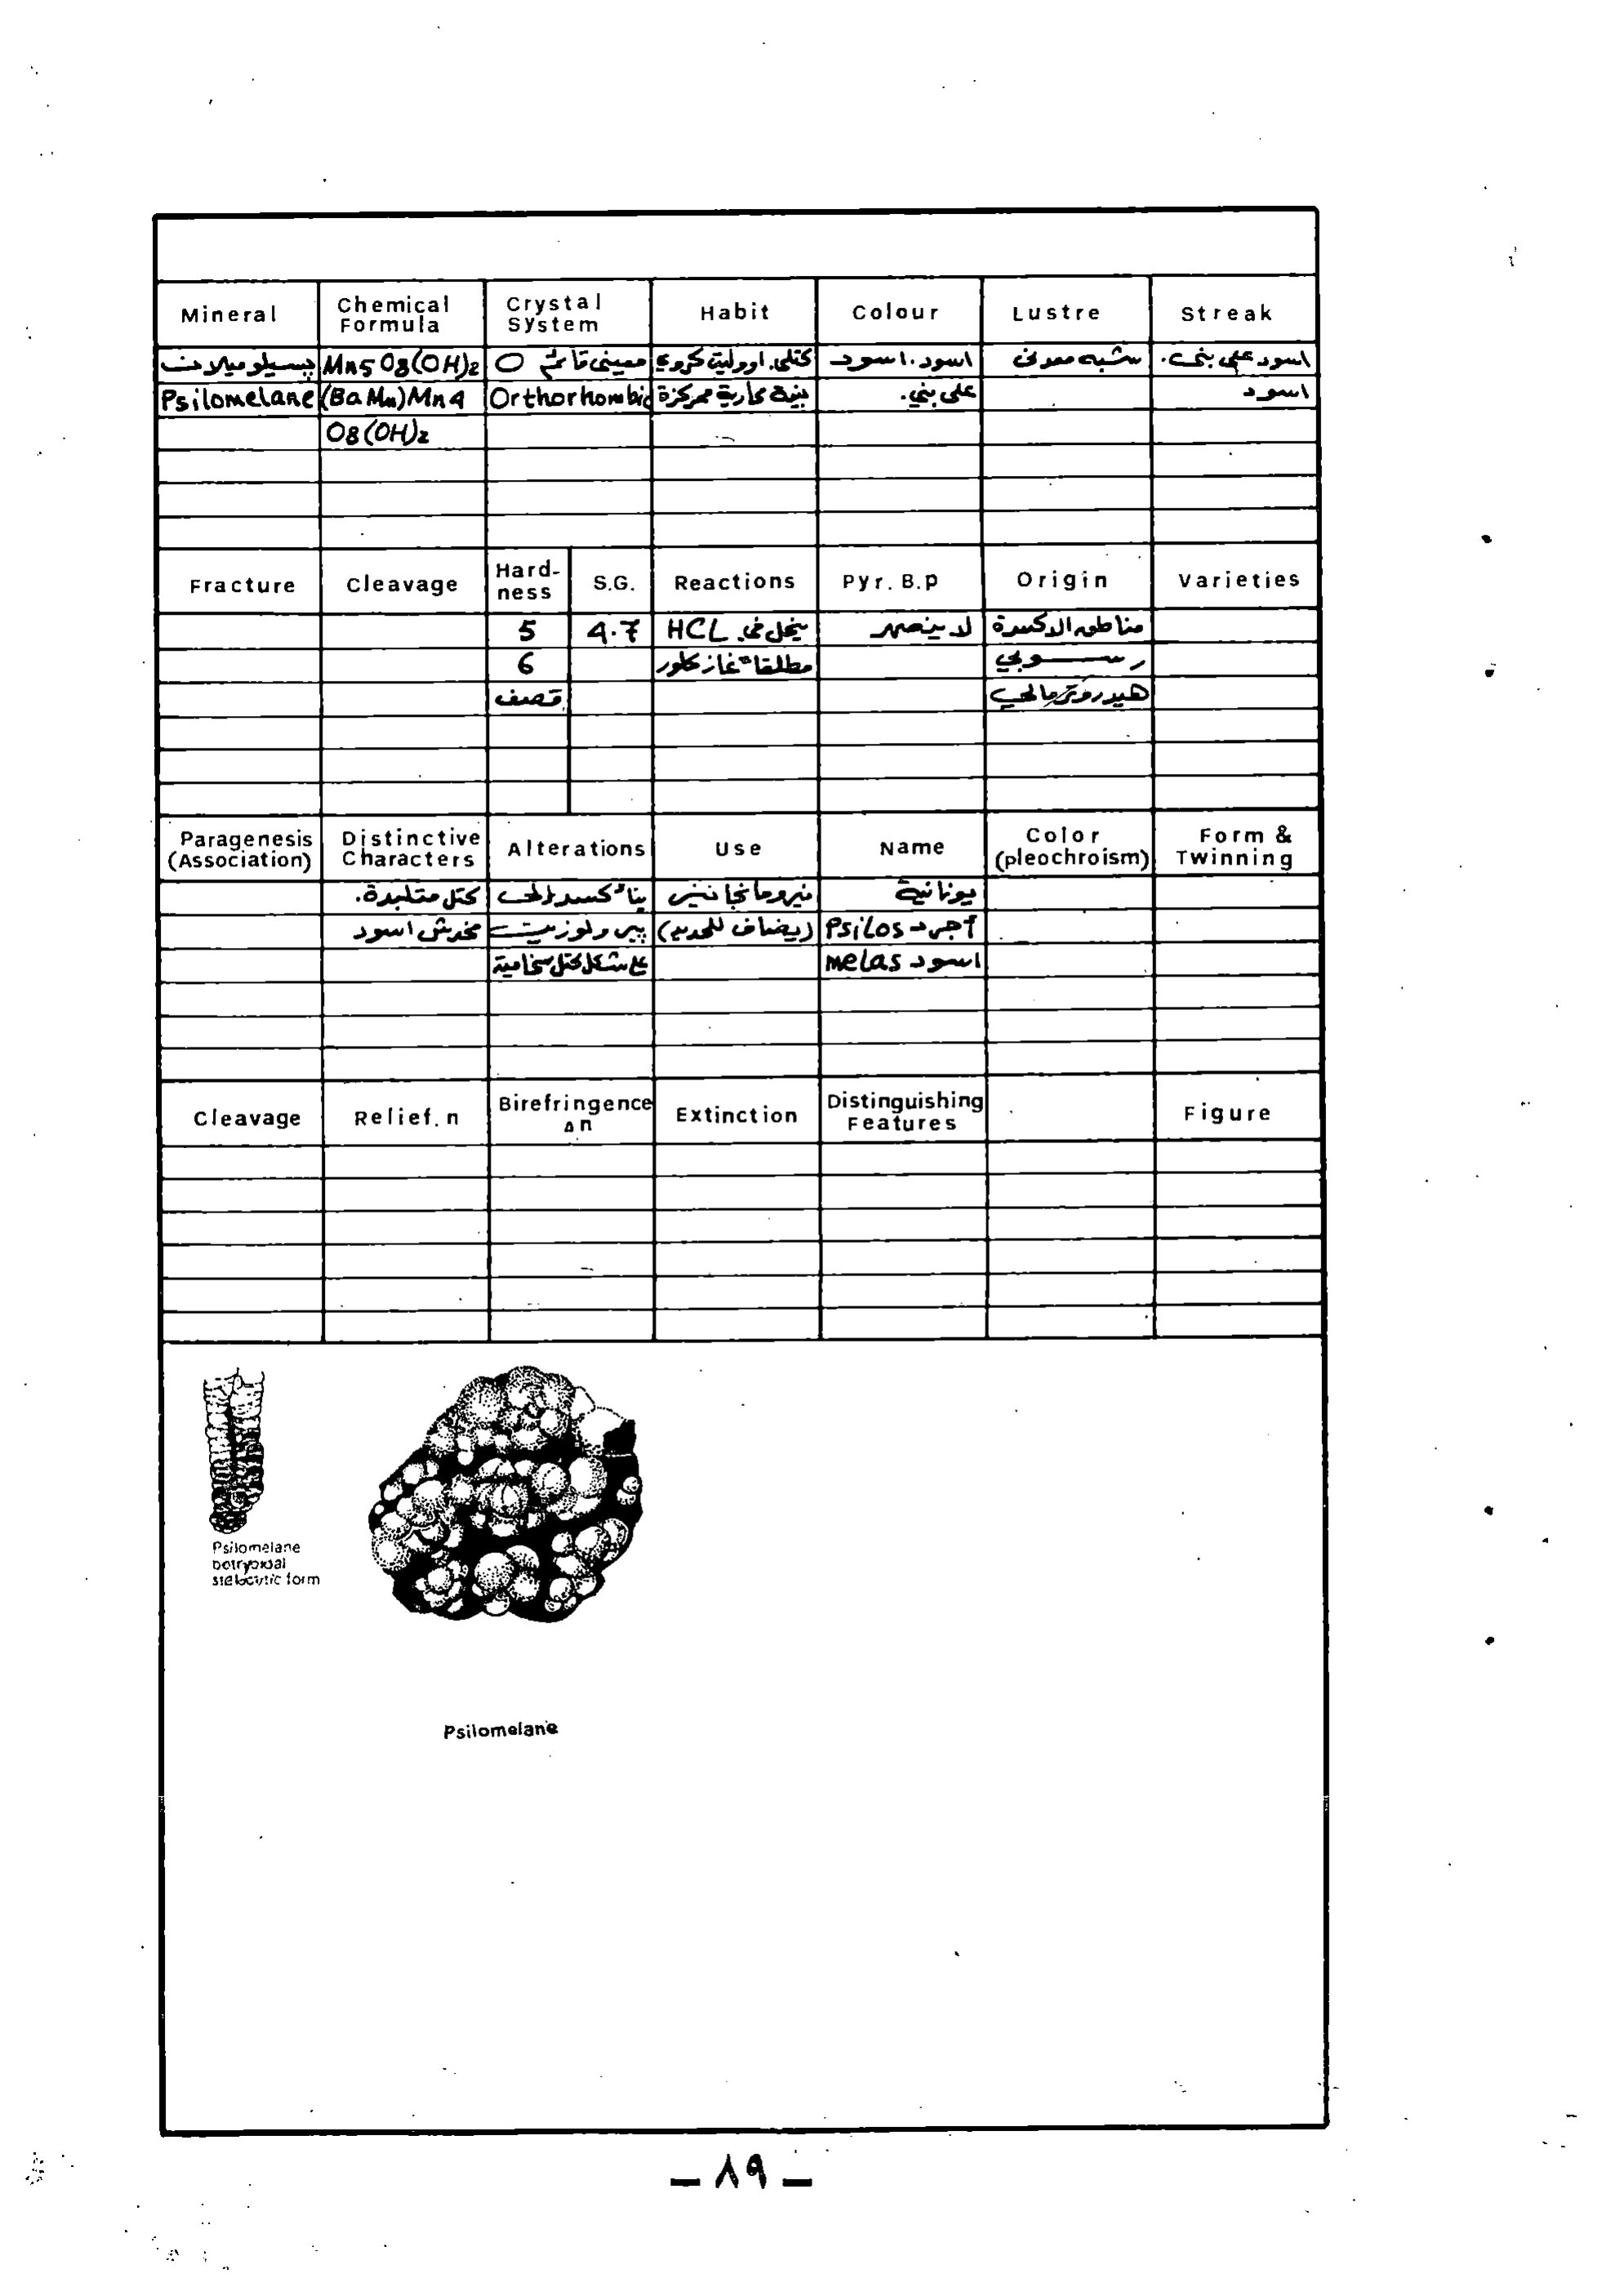 Mineral Chemical Formula Crystal System Habit Colour Lustre Streak
بسيلوميلانت Mn5O8(OH)2 معيني قائم O كتلي. اووليتي كروي اسود. اسود شبه معدني اسود على بني.
Psilomelane (BaMn)Mn4 Orthorhombic بنية محارية ممركزة على بني. اسود
O8(OH)2
Fracture Cleavage Hardness S.G. Reactions Pyr. B.p Origin Varieties
5 4.7 ينحل في HCL لا ينصهر مناطق الاكسدة
6 مطلقاً غاز كلور رسوبي
قصف هيدروترمالي
Paragenesis (Association) Distinctive Characters Alterations Use Name Color (pleochroism) Form & Twinning
كتل متلبدة. يتأكسد إلى فيرومانجانيز يونانية
مخدش اسود بيرولوزيت (يضاف للحديد) Psilos أجرد
على شكل كتل سخامية melas اسود
Cleavage Relief. n Birefringence Δn Extinction Distinguishing Features Figure
Psilomelane
botryoidal
stalactitic form
Psilomelane
– ٨٩ –